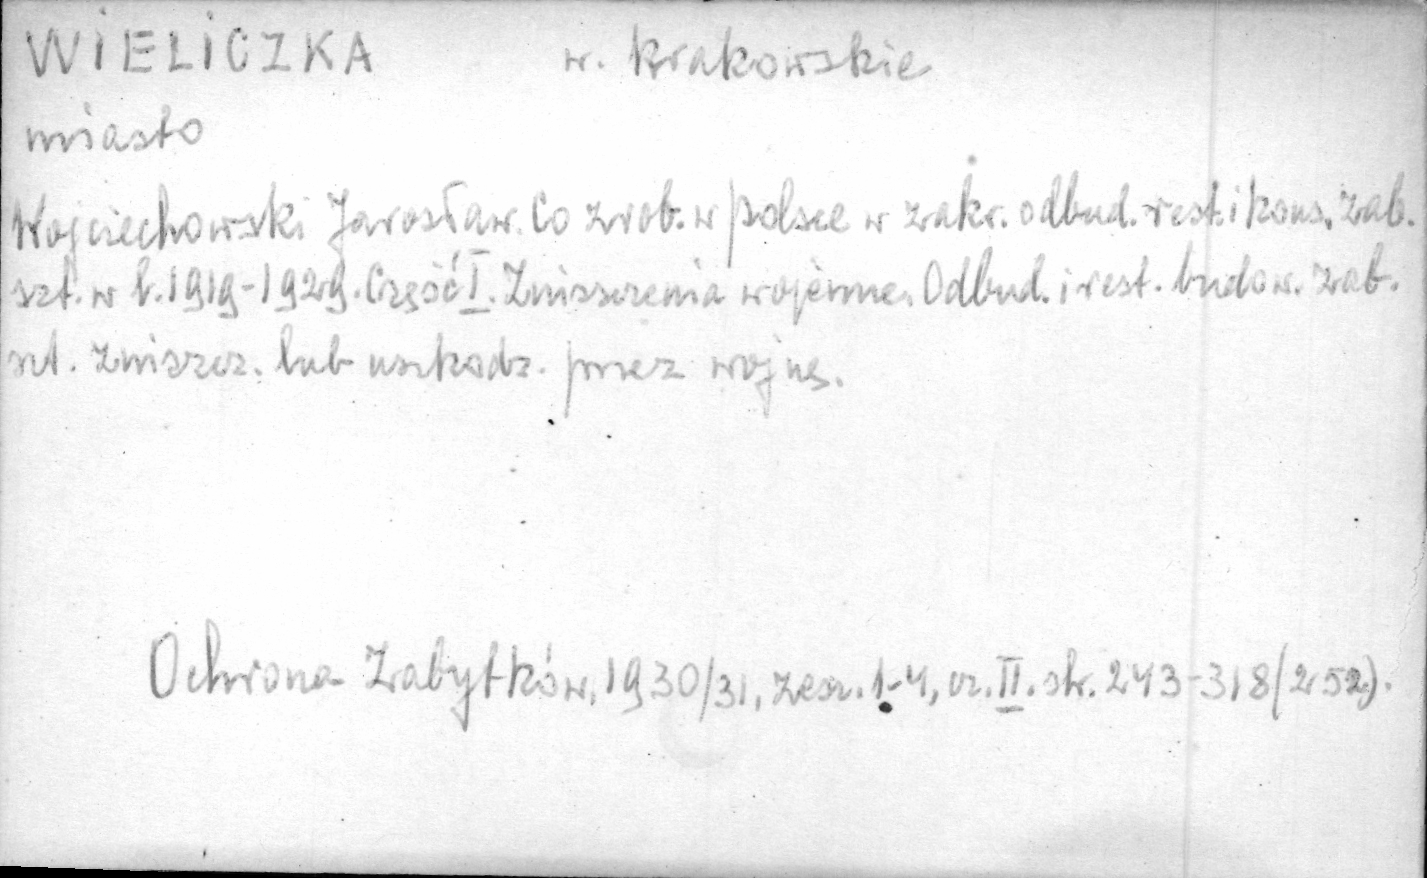 WIELICZKA w. krakowskie
miasto
Wojciechowski Jarosław. Co zrob. w Polsce w zakr. odbud. rest. i kons. zab.
szt. w l. 1919-1929. Część I. Zniszczenia wojenne. Odbud. i rest. budow. zab.
szt. zniszcz. lub uszkodz. przez wojnę.
Ochrona Zabytków, 1930/31, zesz. 1-4, cz. II. str. 243-318 (252).